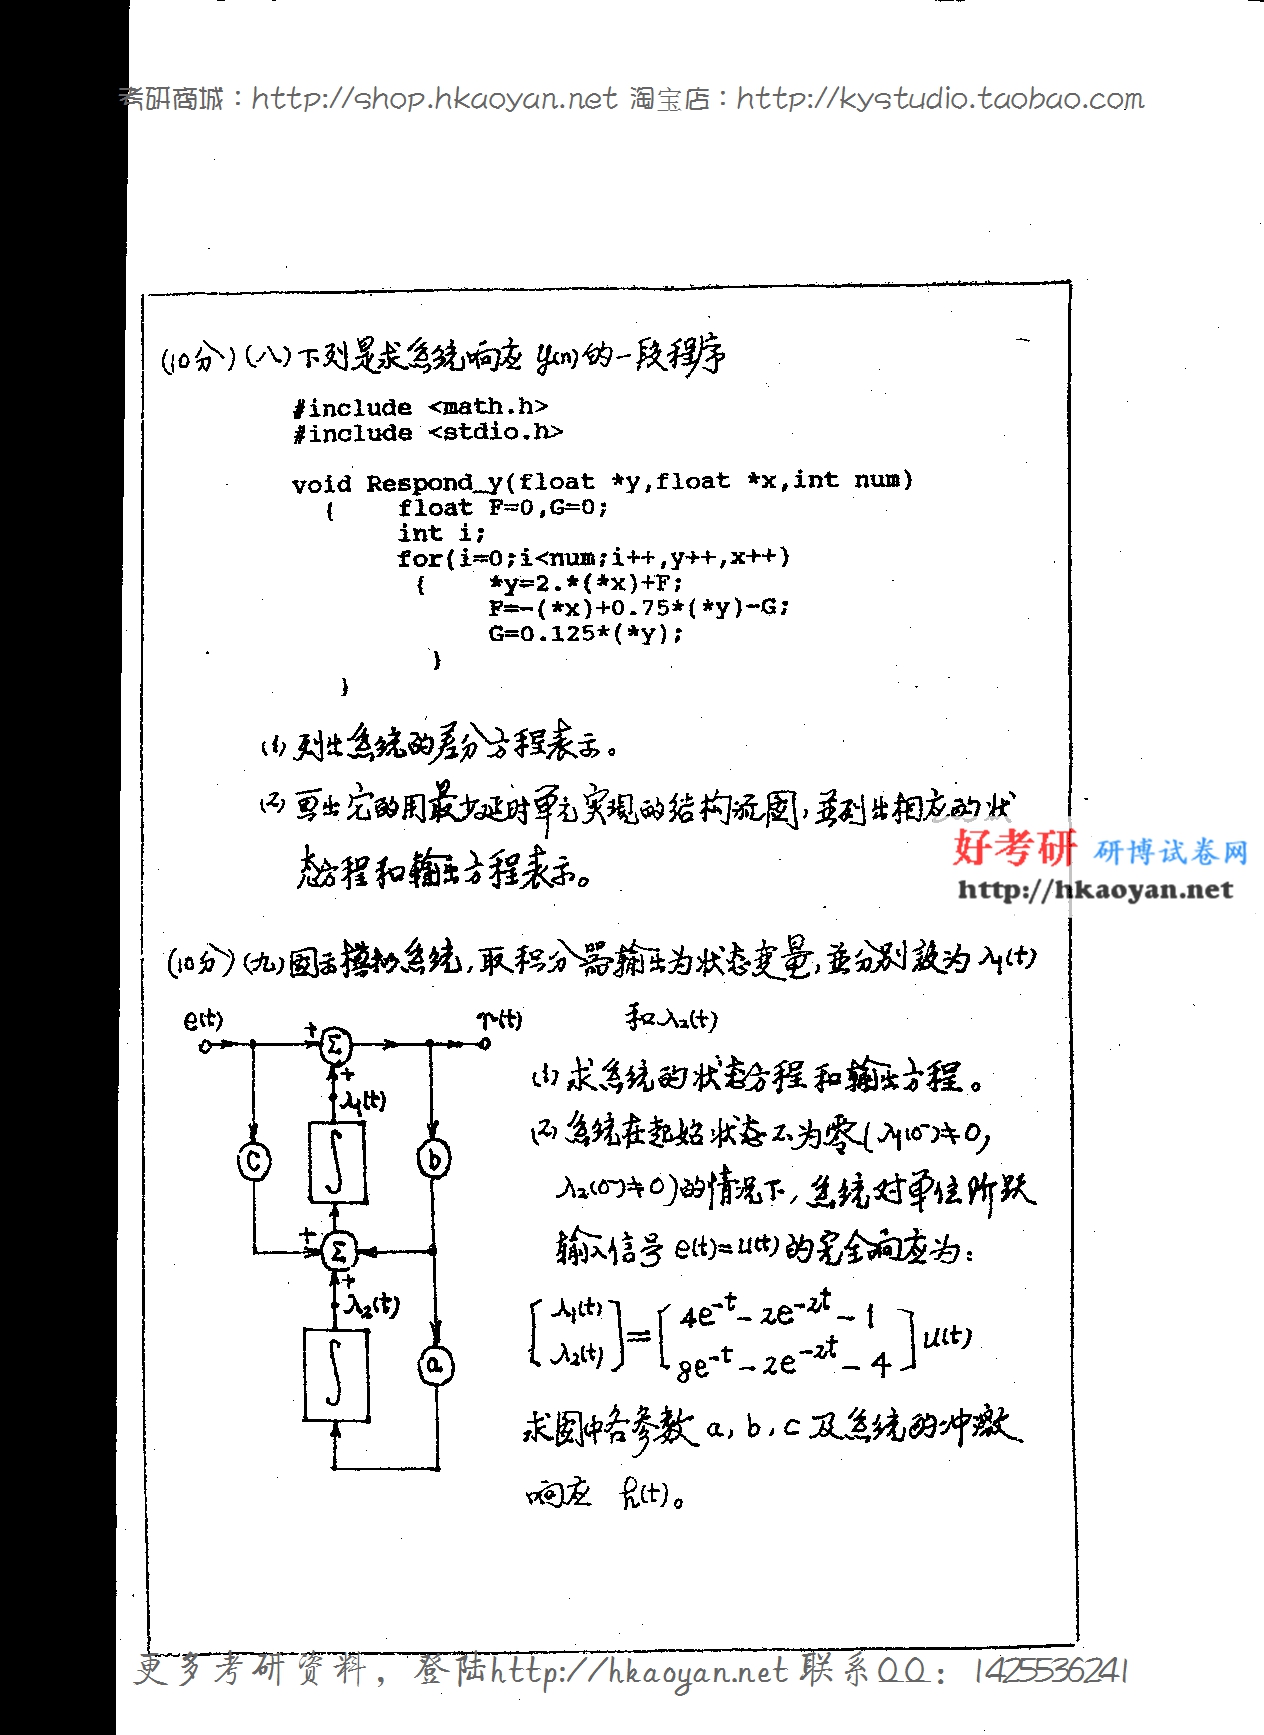 考研商城：http://shop.hkaoyan.net 淘宝店：http://kystudio.taobao.com
(10分)(八)下列是求系统响应 y(n)的一段程序
#include <math.h>
#include <stdio.h>
void Respond_y(float *y,float *x,int num)
{ float F=0,G=0;
int i;
for(i=0;i<num;i++,y++,x++)
{ *y=2.*(*x)+F;
F=-(*x)+0.75*(*y)-G;
G=0.125*(*y);
}
}
(1) 列出系统的差分方程表示。
(2) 画出它的用最少延时单元实现的结构流图,並列出相应的状
态方程和输出方程表示。
好考研 研博试卷网
http://hkaoyan.net
(10分)(九)图示模拟系统,取积分器输出为状态变量,並分别设为 λ₁(t)
和 λ₂(t)
e(t) + Σ r(t)
+ λ₁(t)
c ∫ b
+ Σ
+ λ₂(t)
∫ a
(1) 求系统的状态方程和输出方程。
(2) 系统在起始状态不为零(λ₁(0⁻)≠0,
λ₂(0⁻)≠0)的情况下,系统对单位阶跃
输入信号 e(t)=u(t)的完全响应为:
[λ₁(t) λ₂(t)] = [4e^-t - 2e^-2t - 1 8e^-t - 2e^-2t - 4] u(t)
求图中各参数 a, b, c 及系统的冲激
响应 h(t)。
更多考研资料，登陆http://hkaoyan.net 联系QQ：1425536241